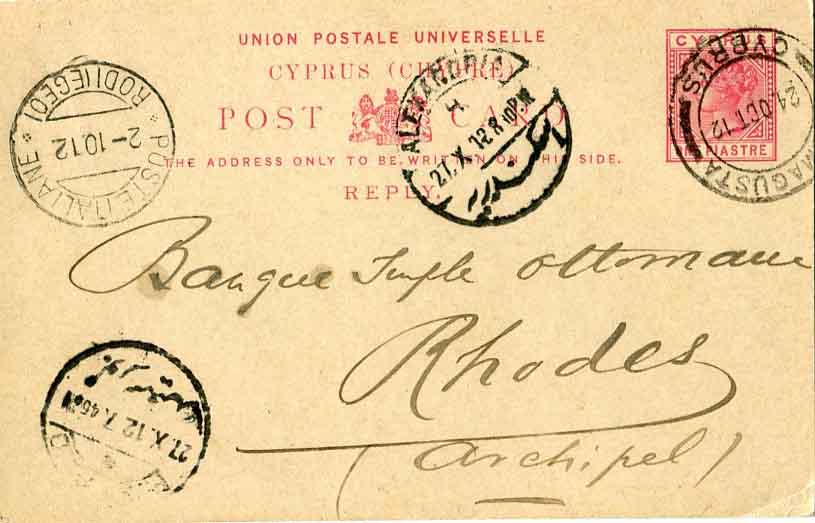 UNION POSTALE UNIVERSELLE
CYPRUS (CHYPRE)
POST CARD
THE ADDRESS ONLY TO BE WRITTEN ON THIS SIDE.
REPLY.
CYPRUS
PIASTRE
CYPRUS
24 OCT 12
MAGUSTA
ALEXANDRIA
27.X.12.8 10PM
POSTE ITALIANE
2-10 12
RODI (EGEO)
Banque Imple Ottomane
Rhodes
(Archipel)
27.X.12.7.45